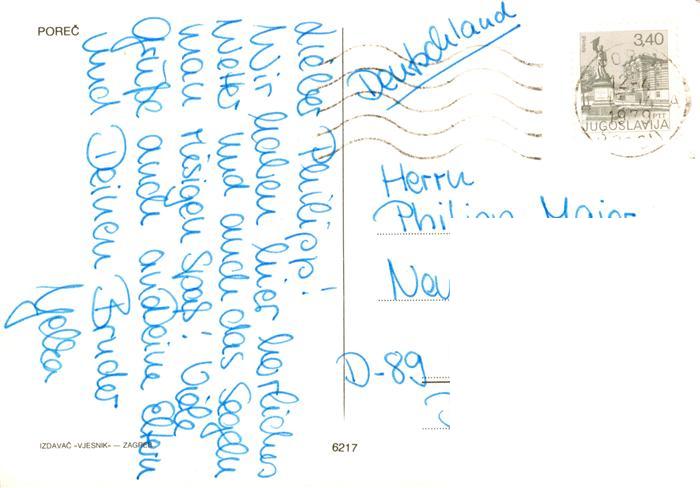 POREČ
Lieber Philipp!
Wir haben hier herrliches
Wetter und auch das Segeln
man riesigen Spaß! Viele
Grüße auch an Deine Eltern
und Deinen Bruder
Yelka
Deutschland
3,40
1979
PTT
JUGOSLAVIJA
Herrn
Philipp Maier
Neu
D-89
IZDAVAČ »VJESNIK« — ZAGREB
6217